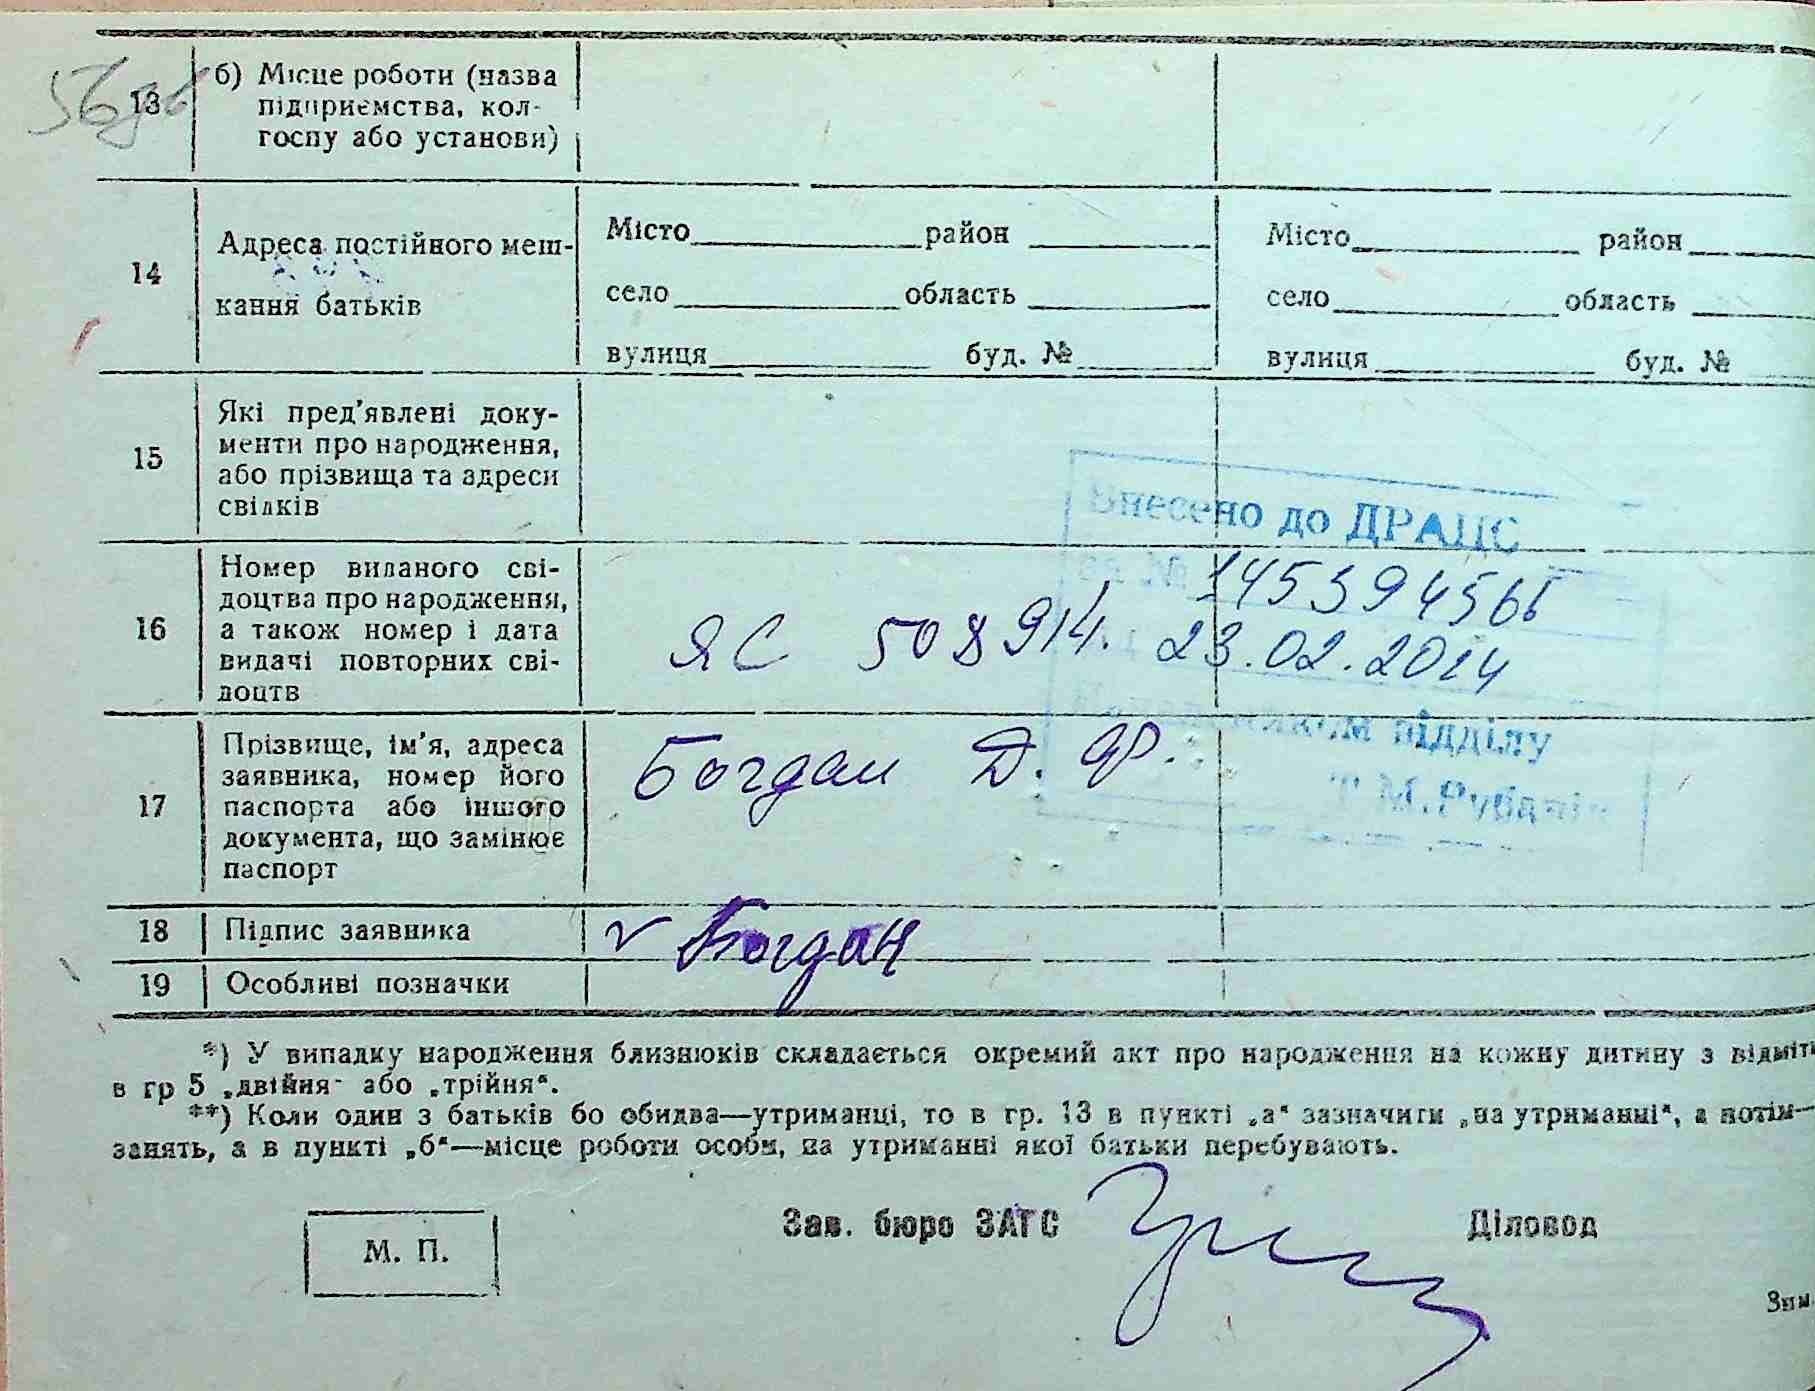 13
б) Місце роботи (назва
підприємства, кол-
госпу або установи)
14
Адреса постійного меш-
кання батьків
Місто район
село область
вулиця буд. №
Місто район
село область
вулиця буд. №
15
Які пред'явлені доку-
менти про народження,
або прізвища та адреси
свідків
Внесено до ДРАЦС
за № 145394566
23.02.2014
Начальником відділу
Т.М.
16
Номер виданого сві-
доцтва про народження,
а також номер і дата
видачі повторних сві-
доцтв
ЯС 508914.
17
Прізвище, ім'я, адреса
заявника, номер його
паспорта або іншого
документа, що замінює
паспорт
Богдан Д. Ф.
18
Підпис заявника
Богдан
19
Особливі позначки
*) У випадку народження близнюків складається окремий акт про народження на кожну дитину з відміт
в гр 5 „двійня" або „трійня“.
**) Коли один з батьків бо обидва—утриманці, то в гр. 13 в пункті „а“ зазначити „на утриманні“, а потім—
занять, а в пункті „б“—місце роботи особи, на утриманні якої батьки перебувають.
М. П.
Зав. бюро ЗАГС
Діловод